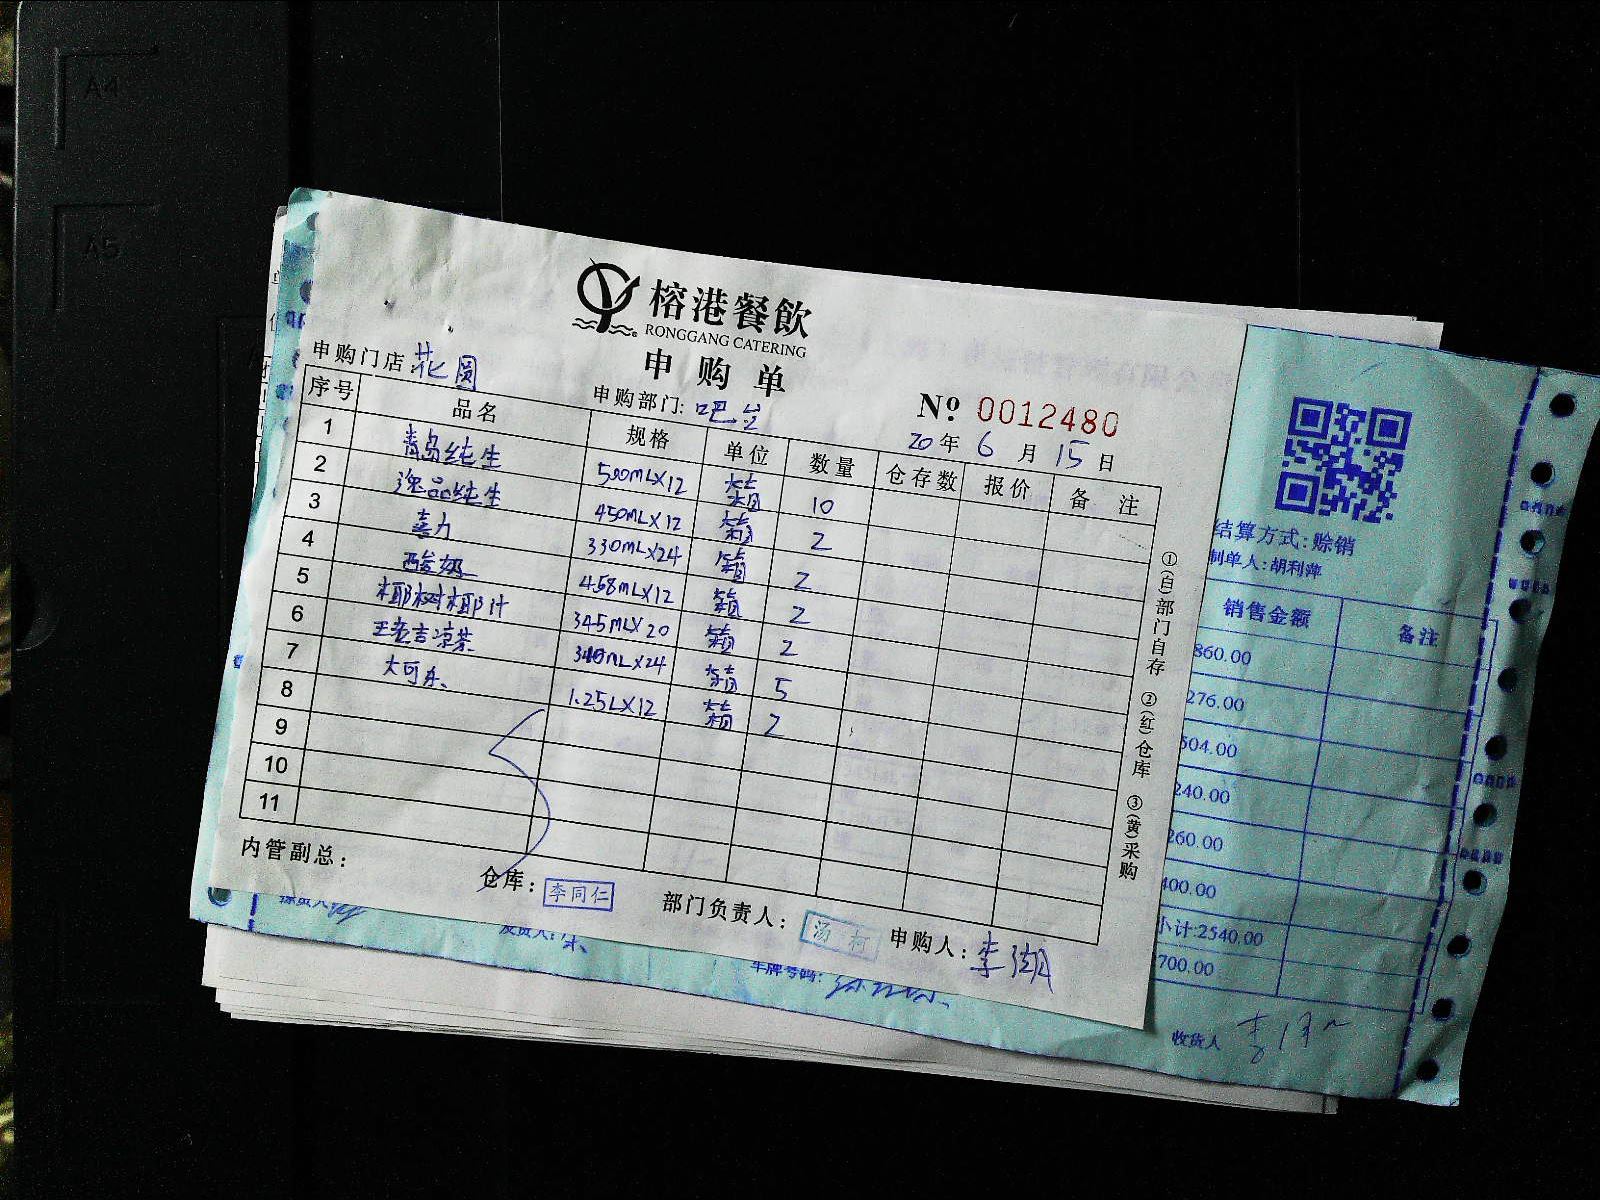 A4
A5
榕港餐飲
RONGGANG CATERING
申购单
申购门店:花圆
申购部门:吧台
№ 0012480
20年 6 月 15 日
序号 品名 规格 单位 数量 仓存数 报价 备 注
1 青岛纯生 500ML×12 箱 10
2 逸品纯生 450ML×12 箱 2
3 喜力 330ML×24 箱 2
4 酸奶 458ML×12 箱 2
5 椰树椰汁 345ML×20 箱 2
6 王老吉凉茶 340ML×24 箱 5
7 大可乐 1.25L×12 箱 2
8
9
10
11
①(白)部门自存 ②(红)仓库 ③(黄)采购
内管副总:
仓库: 李同仁
部门负责人: 汤柯
申购人: 李湖
结算方式:赊销
制单人:胡利萍
销售金额 备注
860.00
276.00
504.00
240.00
260.00
400.00
小计:2540.00
700.00
车牌号码:
收货人